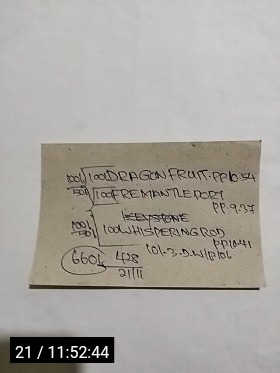 100/- 100DRAGONFRUIT.PP10.54
50/- 100FREMANTLEPORT
PP.9.37
KEYSTONE
100/- 100WHISPERINGROD
50/- PP10.41
101-3-D.W/P/06
660/- 428
21/11
21 / 11:52:44